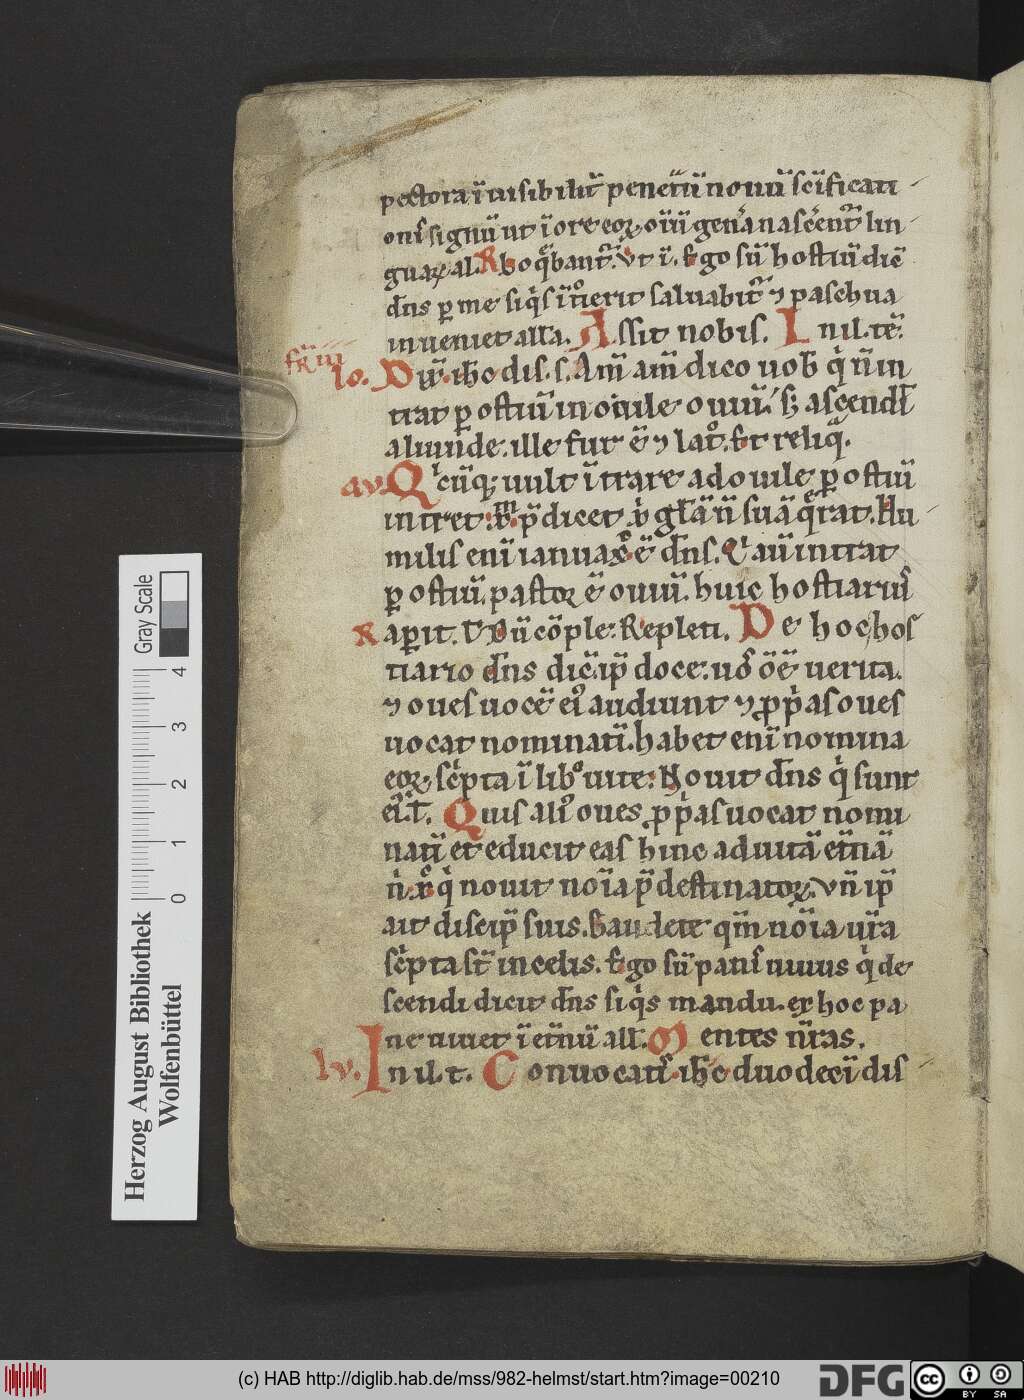 pectora ī uisibilit̄ penet̄ū nouū sc̄ificati
onis signū ut ī ore eoꝝ oīū gen̄a nascent̄ lin
guaꝝ al. R. loq̄bant̄. Ut ī. Ego sū hostiū dic̄
dn̄s ꝑ me siq̇s īt̊ierit saluabit̄ ⁊ paschua
inueniet all'a. Assit nobis. In il. te.
fr̄ iii
lo. Dix̄. ih̄c dis. s. Am̄ am̄ dico uob̄ q̇ n̄ in
trat ꝑ ostiū in ouile ouiū. s; ascend̄t
aliunde. ille fur ē ⁊ lat̊. Et reliq̄.
au. Qicūq; uult ītrare ad ouile ꝑ ostiū
intret. p̄dicet gl̄am n̄ suā q̄rat. Hu
milis enī ianua xp̄c ē dn̄s. Qi aū intrat
ꝑ ostiū. pastor ē ouiū. huic hostiarius
R aꝑit. V Dū cōple. Repleti. De hoc hos
tiario dn̄s dic̄. ip̄ doce. uo om̄ē uerita.
⁊ oues uocē ei audiunt ⁊ ꝓṗas oues
uocat nominatī. habet enī nomina
eoꝝ sc̄pta ī lib̊ uite. Nouit dn̄s q̇ sunt
ei. T. Quis ali oues ꝓṗas uocat nomi
natī et educit eas hinc ad uitā et̄nā
n̄. q̇ nouit noīa p̄destinatoꝝ. Vn̄ ip̄
ait discip̄ suis. Gaudete qm̄ noīa ur̄a
sc̄pta st̄ in celis. Ego sū panis uiuus q̇ de
scendi dicit dn̄s siq̇s mandu. ex hoc pa
ne uiuet ī et̄nū all'. Mentes nr̄as.
lv. In il. t. Conuocatis. ih̄c duodecī dis
Herzog August Bibliothek
Wolfenbüttel
Gray Scale
0 1 2 3 4
(c) HAB http://diglib.hab.de/mss/982-helmst/start.htm?image=00210
DFG
cc BY SA